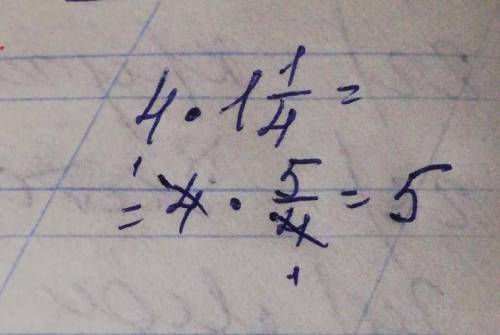 4 · 1 1/4 =
= 4 · 5/4 = 5